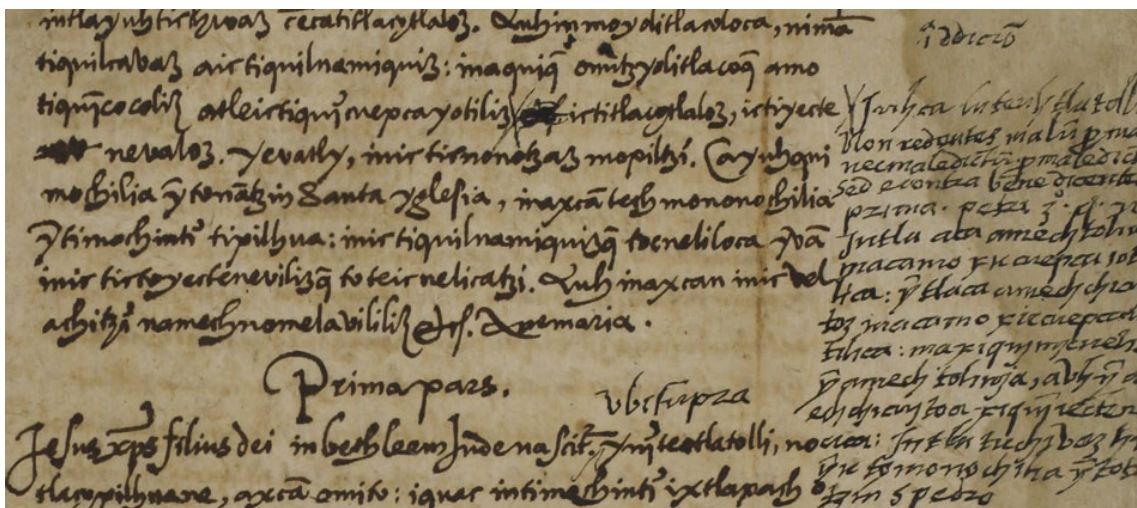 intlayuhticħivaz cẽcatitlaçotlaloz. Auh in moyolitlacoloca, nimã
tiquilcavaz aic tiquilnamiquiz: in aquiq̃ omitzyolitlacoq̃ amo
tiquĩcocoliz atleictiquĩcnepcayotiliz ictitlaçotlaloz, ictiyecte
nevaloz. Yevatly, inic ticnonotzaz mopiltzĩ. Ca yuhqui
mochilia ỹ tonãtzin Santa yglesia, in axcã techmononochilia
ỹ timochintĩ tipilhua: inic tiquilnamiquizq̃ tocneliloca yvã
inic tictoyectenevilizq̃ toteicnelicatzĩ. Auh in axcan inic vel
achitzĩ namechnomelavililiz
Prima pars.
Jesus xp̃s filius dei in bethleem Jude nascit̃ yniteotlatolli, no
tlaçopilhuane, axcã omito: iquac intimochintĩ ixtlapach
ỹdiciõ
Non redentes malũ p ma
nec maledictũ p maledic
sed econtra benedicente
prima. petri 3.
Intla aca amechtolin
macamo xiccuepca
tica: ỹtla aca amechchic
toz macamo xiccuepca
tilica: maxiquimicneli
ỹ amechtolinia, auh ỹ a
echchicoitoa xiquiyecten
vbi supra
ỹc tomonochilia ỹ tot
tzin S pedro